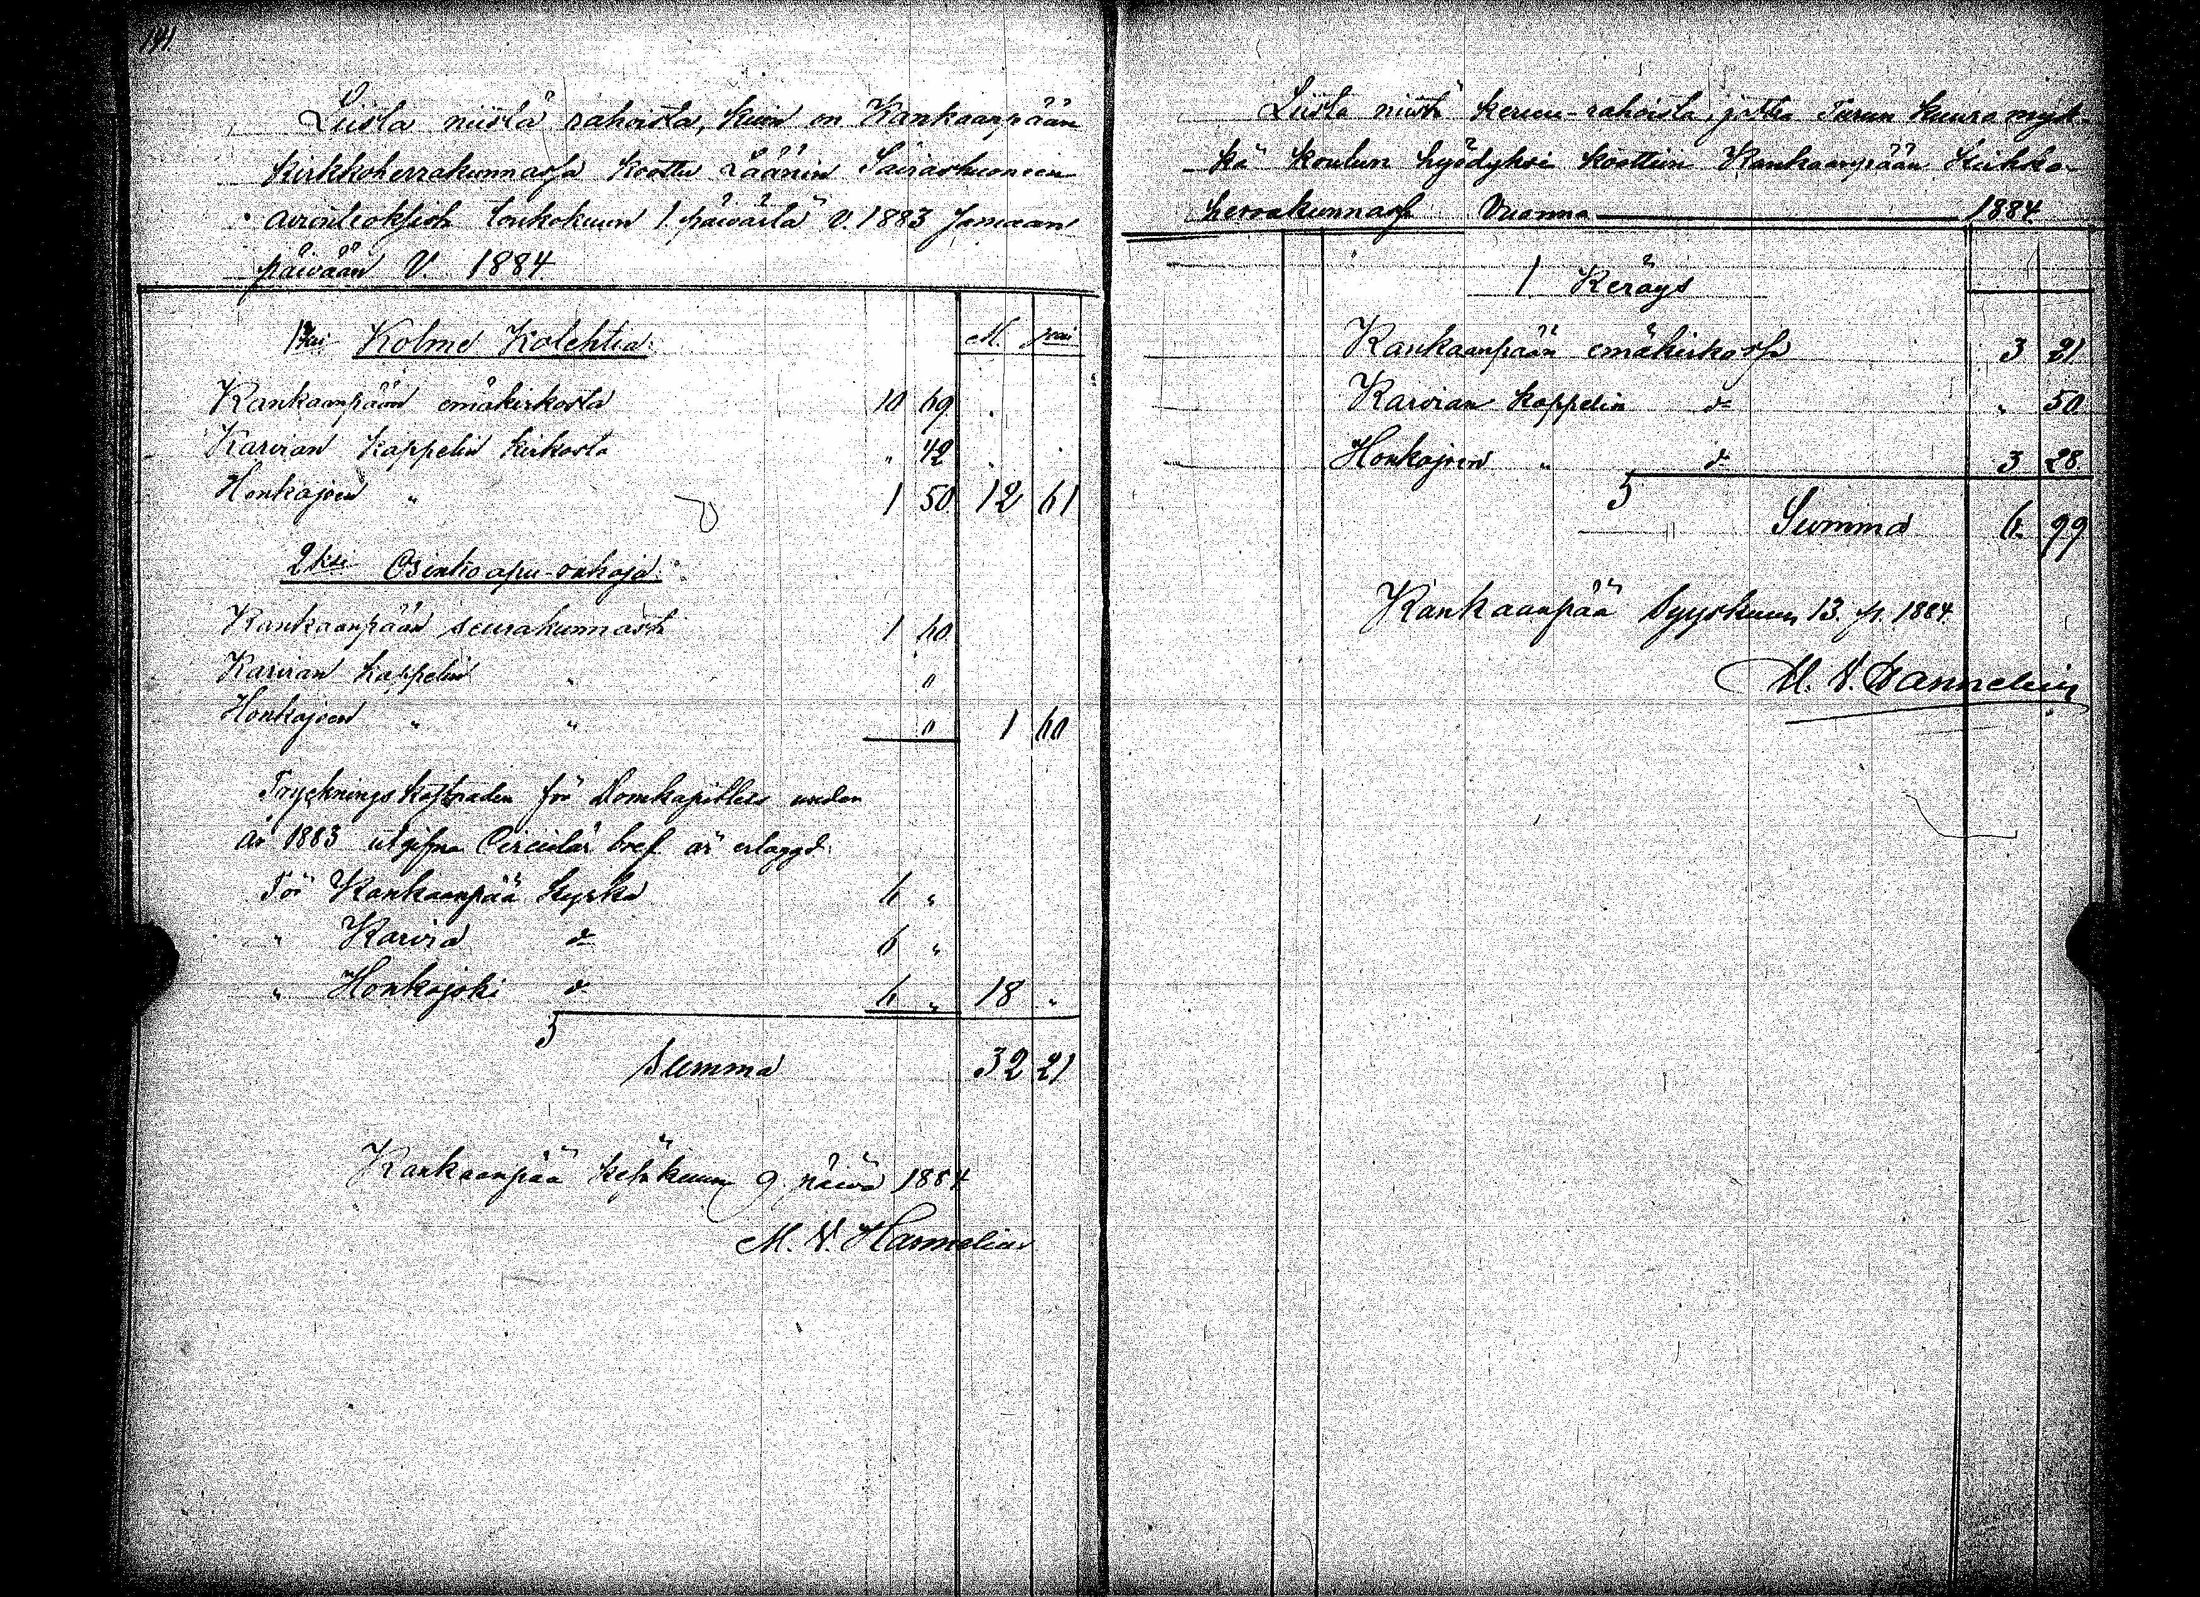 141
Lista niistä rahoista, kuin on Kankaanpään
kirkkoherrakunnassa koottu Läänin Sairashuoneen
toukokuun 1. päivästä v. 1883 samaan
päivään v. 1884
1ksi Kolme Kolehtia. M. pni
Kankaanpään emäkirkosta 10 69
Karvian kappelin kirkosta " 42
Honkajoen " 1 50 12 61
2ksi Osinko apu-rahoja.
Kankaanpään seurakunnasta 1 60
Karvian kappelin " "
Honkajoen " " " 1 60
Tryckningskostnaden för Domkapitlets under
år 1883 utgifna Circulär bref är erlagd.
För Kankaanpää kyrka 6 "
" Karvia d:o 6 "
" Honkajoki d:o 6 " 18 "
Summa 32 21
Kankaanpää kesäkuun 9. päivä 1884
M. V. Hannelius
Lista niistä keruu-rahoista, jotka Turun kuura myk-
kä koulun hyödyksi koottiin Kankaanpään kirkko-
herrakunnassa Vuonna 1884.
1 Keräys
Kankaanpään emäkirkossa 3 21
Karvian kappelin d:o " 50
Honkajoen " d:o 3 28
Summa 6 99
Kankaanpää Syyskuun 13. p. 1884.
M. V. Hannelius